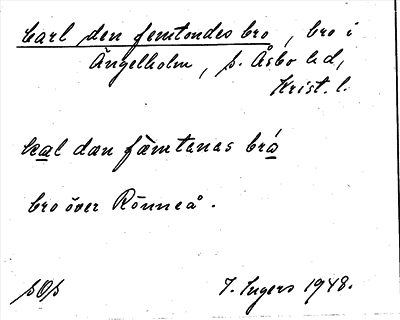 Carl den femtondes bro, bro i
Ängelholm, s. Åsbo hd,
Krist. l.
kal dan fæmtanas brå
bro över Rönneå.
F. Ingers 1948.